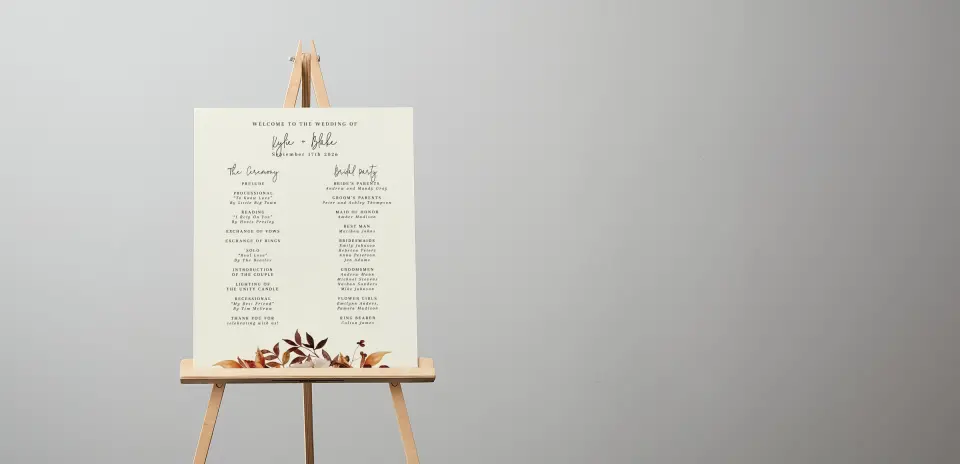 WELCOME TO THE WEDDING OF
Kylie + Blake
September 17th 2026
The Ceremony
PRELUDE
PROCESSIONAL
By Little Big Town
READING
By Elvis Presley
EXCHANGE OF VOWS
EXCHANGE OF RINGS
SOLO
"Real Love"
By The Beatles
INTRODUCTION
OF THE COUPLE
LIGHTING OF
THE UNITY CANDLE
RECESSIONAL
"My Best Friend"
By Tim McGraw
THANK YOU FOR
celebrating with us!
Bridal party
BRIDE'S PARENTS
Andrew and Mandy Gray
GROOM'S PARENTS
Peter and Ashley Thompson
MAID OF HONOR
Amber Madison
BEST MAN
Matthew Johns
BRIDESMAIDS
Emily Johnson
Rebecca Peters
Anna Peterson
Jen Adams
GROOMSMEN
Andrew Mann
Michael Stevens
Nathan Sanders
Mike Johnson
FLOWER GIRLS
Emelynn Anders,
Pamela Madison
RING BEARER
Colton James